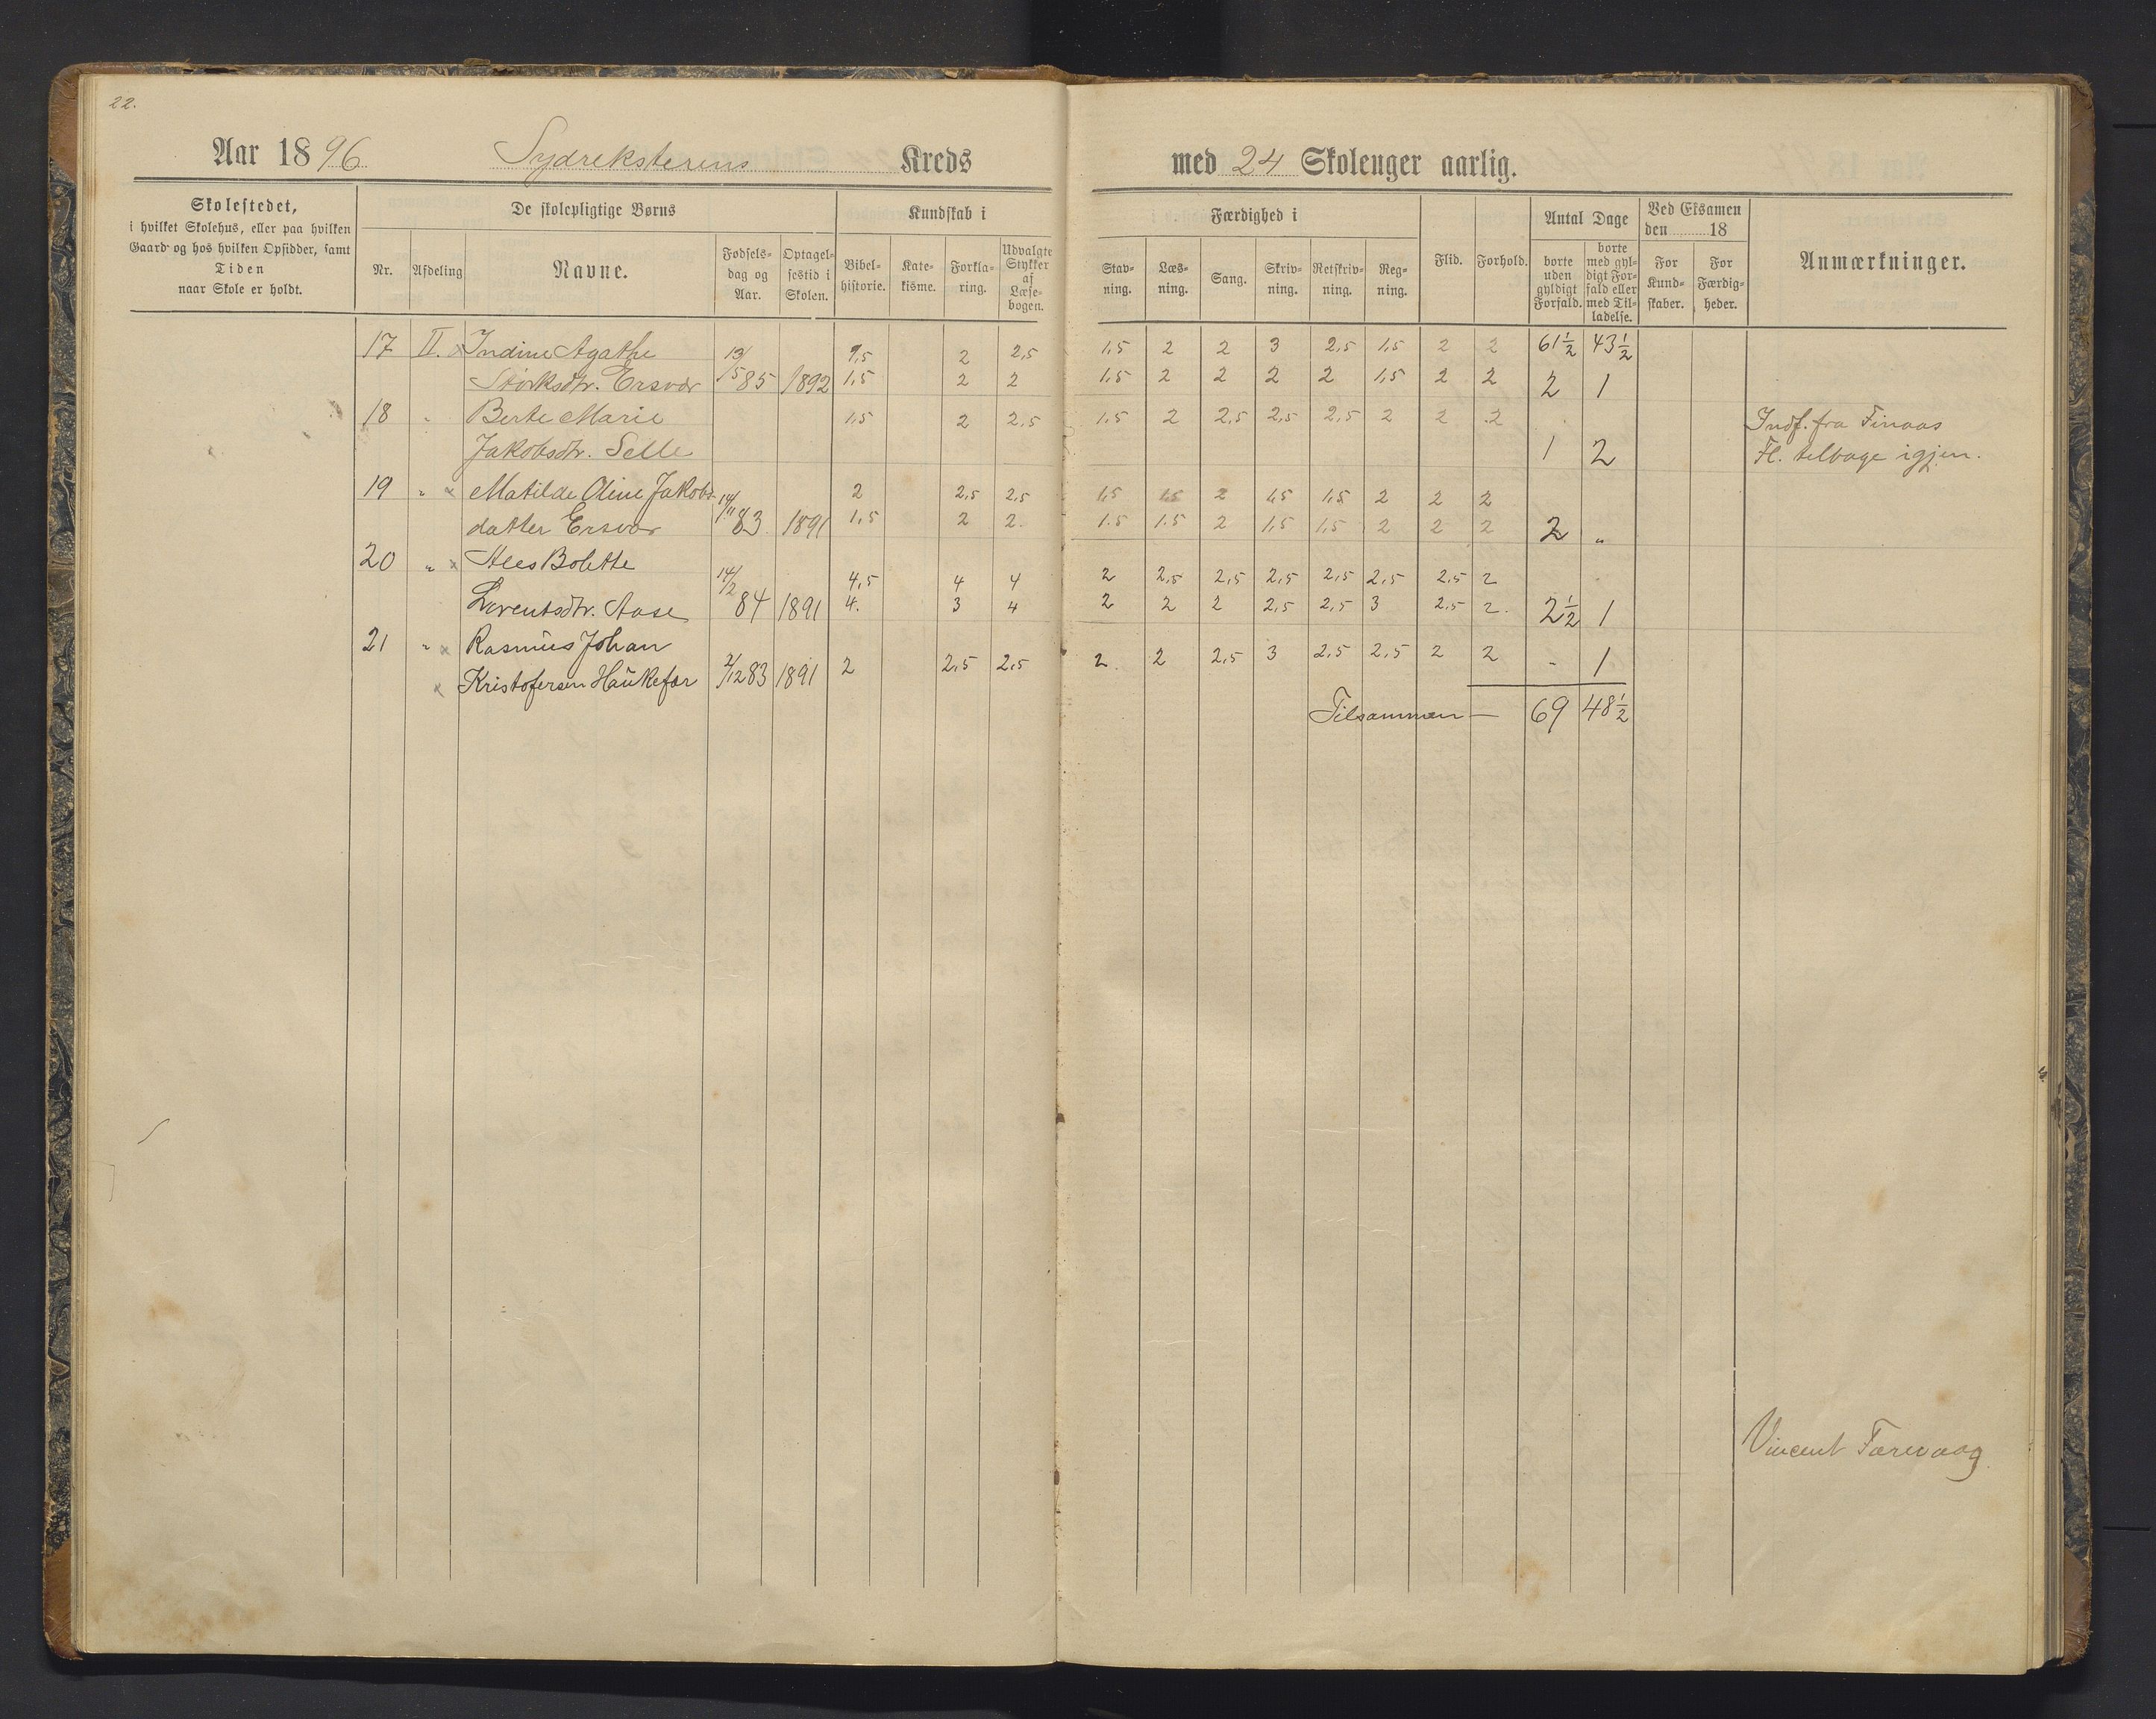 22.
Aar 1896 Sydreksterens Kreds med 24 Skolenger aarlig.
Skolestedet,
i hvilket Skolehus, eller paa hvilken
Gaard og hos hvilken Opsidder, samt
Tiden
naar Skole er holdt.
De skolepligtige Børns
Nr.
Afdeling
Navne.
Fødsels-
dag og
Aar.
Optagel-
sestid i
Skolen.
Kundskab i
Bibel-
historie.
Kate-
kisme.
Forkla-
ring.
Udvalgte
Stykker
af
Læse-
bogen.
Færdighed i
Stav-
ning.
Læs-
ning.
Sang.
Skriv-
ning.
Retskriv-
ning.
Reg-
ning.
Flid.
Forhold.
Antal Dage
borte
uden
gyldigt
Forfald.
borte
med gyl-
digt For-
fald eller
med Til-
ladelse.
Ved Eksamen
den 18
For
Kund-
skaber.
For
Færdig-
heder.
Anmærkninger.
17 II. x Indine Agathe 13/5 1,5 2 2,5 1,5 2 2 3 2,5 1,5 2 2 61 1/2 43 1/2
Størksdtr. Ersvær 85 1892 1,5 2 2 1,5 2 2 2 2 1,5 2 2 2 1
18 " Berte Marie 1,5 2 2,5 1,5 2 2,5 2,5 2,5 2 2 2 Indf. fra Finaas
Jakobsdtr. Selle 1 2 Fl. tilbage igjen.
19 " x Matilde Oline Jakobs- 14/11 2 2,5 2,5 1,5 1,5 2 1,5 1,5 2 2 2
datter Ersvær 83 1891 1,5 2 2. 1.5 1.5 2 1,5 1,5 2 2 2 2 "
20 " x Bolette 14/2 4,5 4 4 2 2,5 2,5 2,5 2,5 2,5 2,5 2
Lorentsdtr. Aase 84 1891 4. 3 4 2 2 2 2,5 2,5 3 2,5 2. 2 1/2 1
21 " x Rasmus Johan
x Kristofersen Haukefær 2/12 83 1891 2 2,5 2,5 2. 2 2,5 3 2,5 2,5 2 2 - 1
Tilsammen — 69 48 1/2
Vincent Færevaag